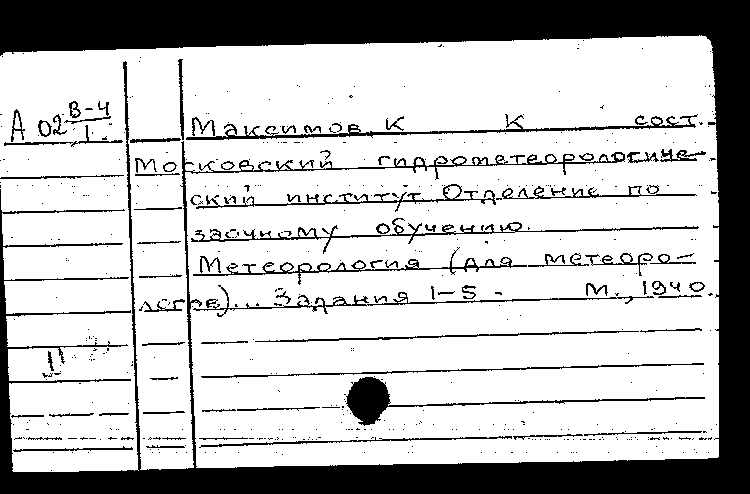 А 02 В-4
1.
Максимов, К К сост.
Московский гидрометеорологиче-
ский институт. Отделение по
заочному обучению.
Метеорология (для метеоро-
логов)... Задания 1-5 - М., 1940.